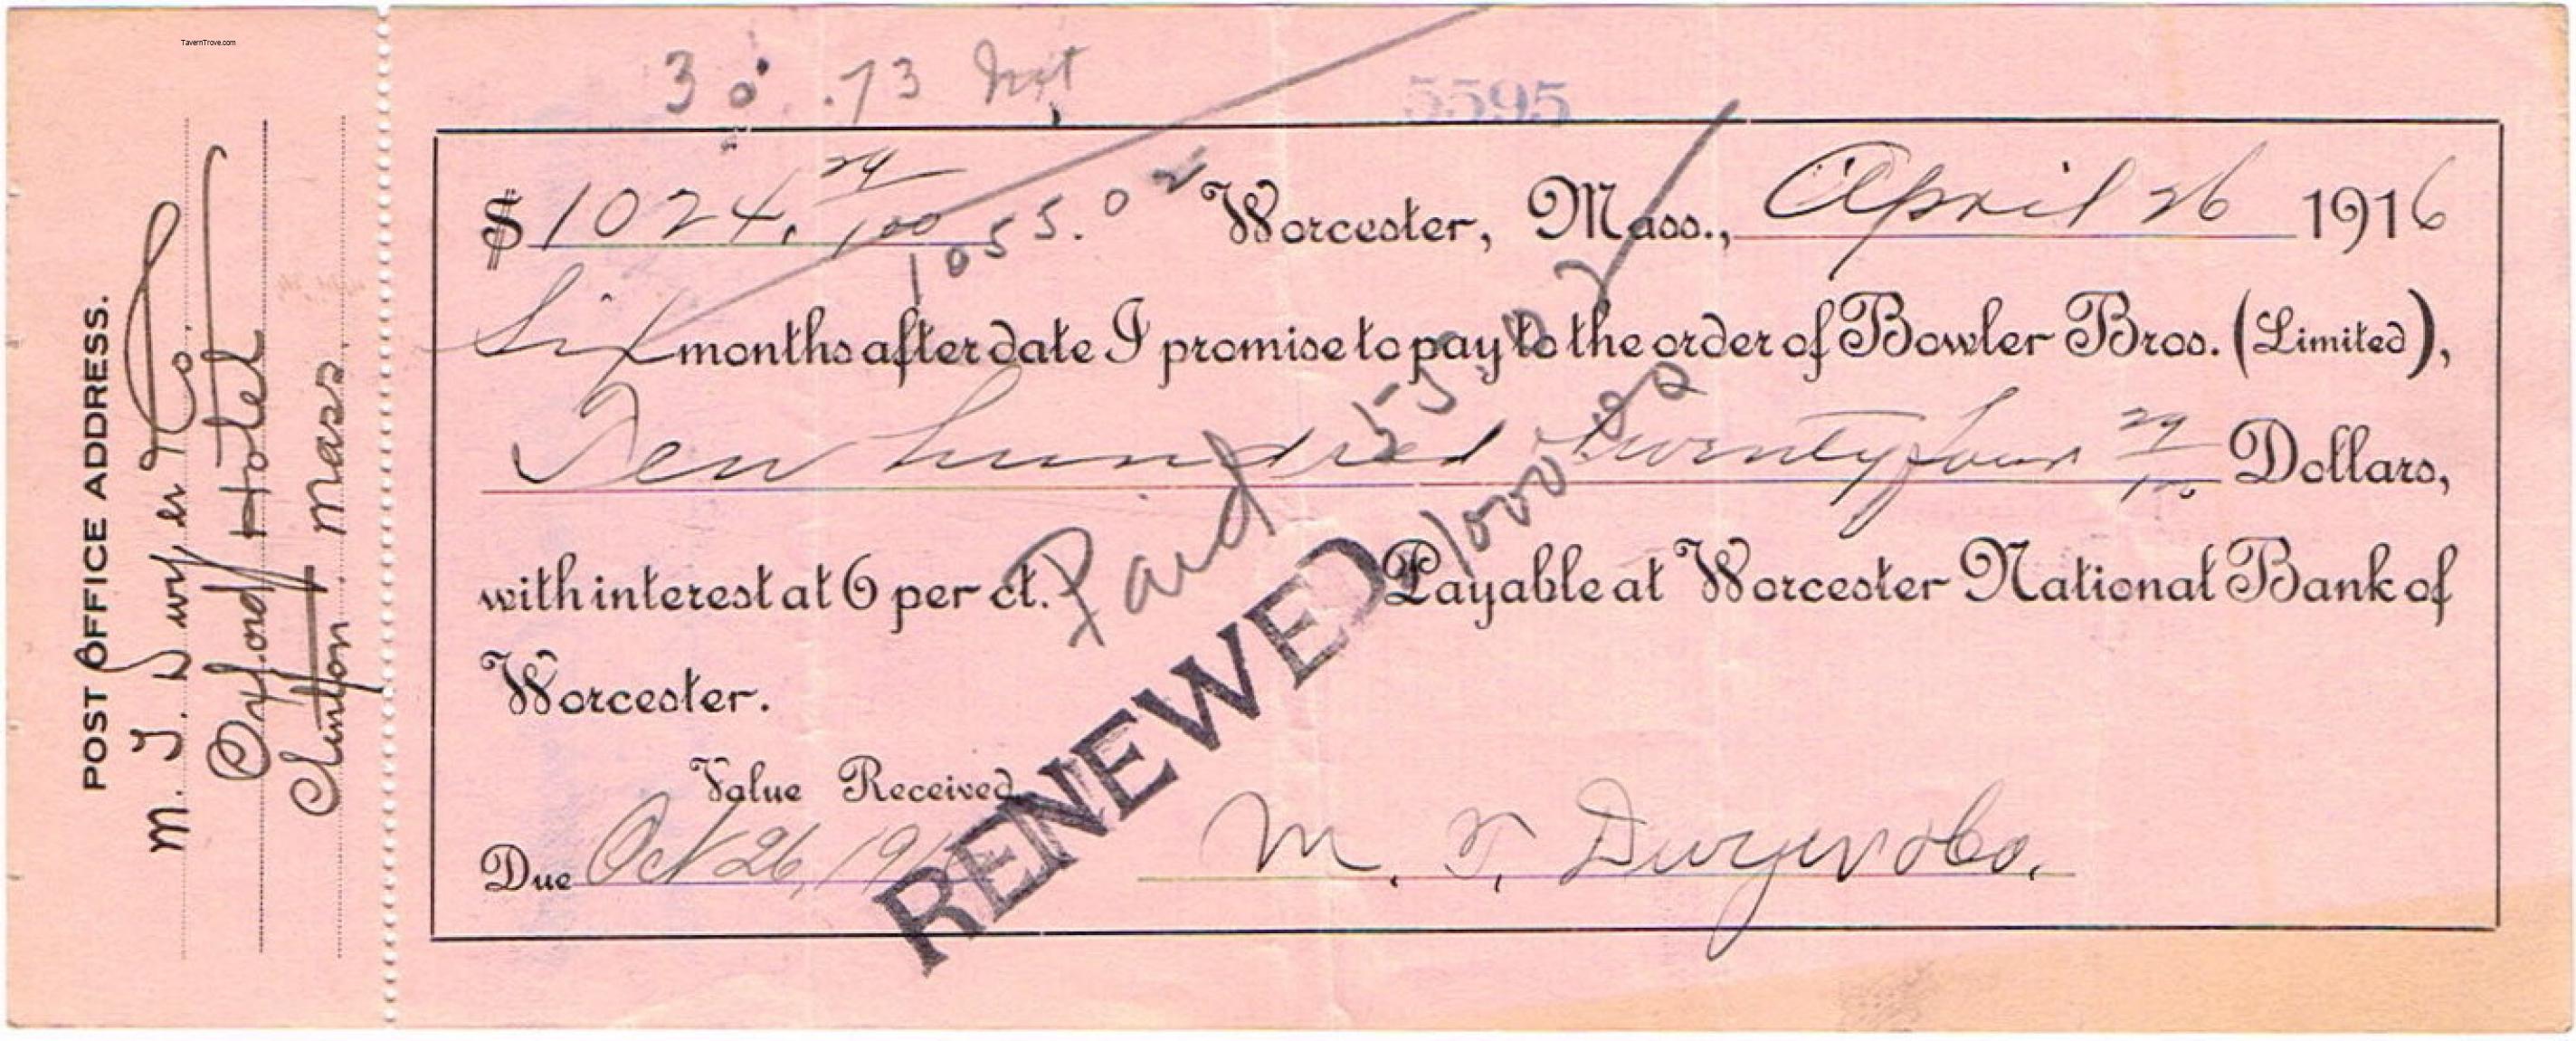 TavernTrove.com
POST OFFICE ADDRESS.
M. T. Dwyer & Co.
Oxford Hotel
Clinton Mass.
30.73 Int
5595
$1024.29/100 Worcester, Mass., April 26 1916
1055.02
Six months after date I promise to pay to the order of Bowler Bros. (Limited),
Ten hundred twenty four 29/100 Dollars,
with interest at 6 per ct. Payable at Worcester National Bank of
Worcester.
Paid 55.02
1000.00
RENEWED
Value Received
Due Oct 26, 1916
M. T. Dwyer & Co.